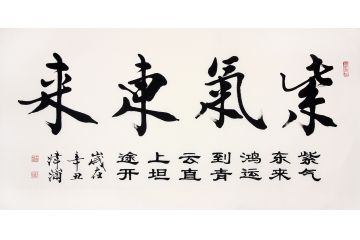 紫氣東来
紫气
东来
鸿运
到青
云直
上坦
途开
歲在
辛丑